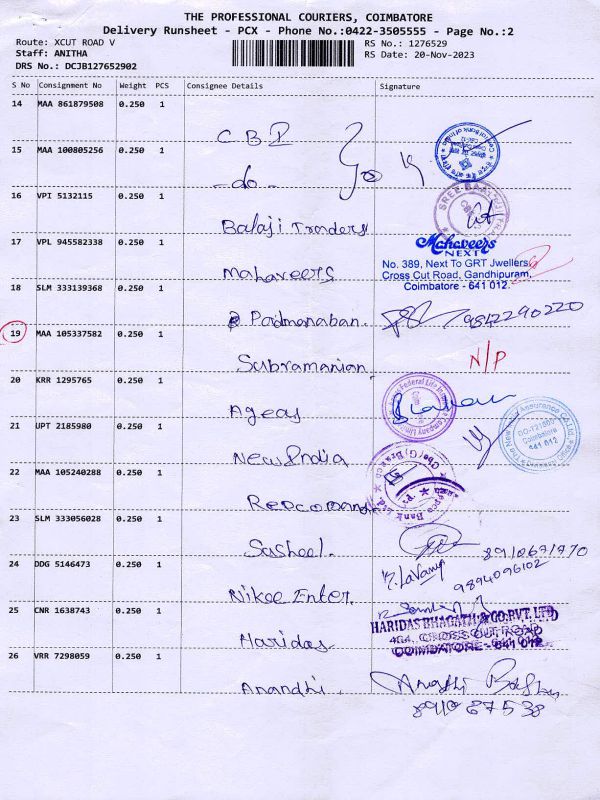 THE PROFESSIONAL COURIERS, COIMBATORE
Delivery Runsheet - PCX - Phone No.:0422-3505555 - Page No.:2
Route: XCUT ROAD V
RS No.: 1276529
Staff: ANITHA
RS Date: 20-Nov-2023
DRS No.: DCJB127652902
S No Consignment No Weight PCS Consignee Details Signature
14 MAA 861879508 0.250 1
C B I
15 MAA 100805256 0.250 1
-do-
16 VPI 5132115 0.250 1
Balaji Traders
17 VPL 945582338 0.250 1
Mahaveers
Mahaveers
NEXT
No. 389, Next To GRT Jwellers
Cross Cut Road, Gandhipuram,
Coimbatore - 641 012.
18 SLM 333139368 0.250 1
Padmanaban.
9842290220
19 MAA 105337582 0.250 1
Subramanian
N/P
20 KRR 1295765 0.250 1
Ageas
21 UPT 2185980 0.250 1
New India
22 MAA 105240288 0.250 1
Repcobank
23 SLM 333056028 0.250 1
Susheel.
24 DDG 5146473 0.250 1
Nikee Enter.
9894096102
25 CNR 1638743 0.250 1
Haridas.
HARIDAS BHAGATH & CO.PVT. LTD
COIMBATORE - 641 012
26 VRR 7298059 0.250 1
Anandhi.